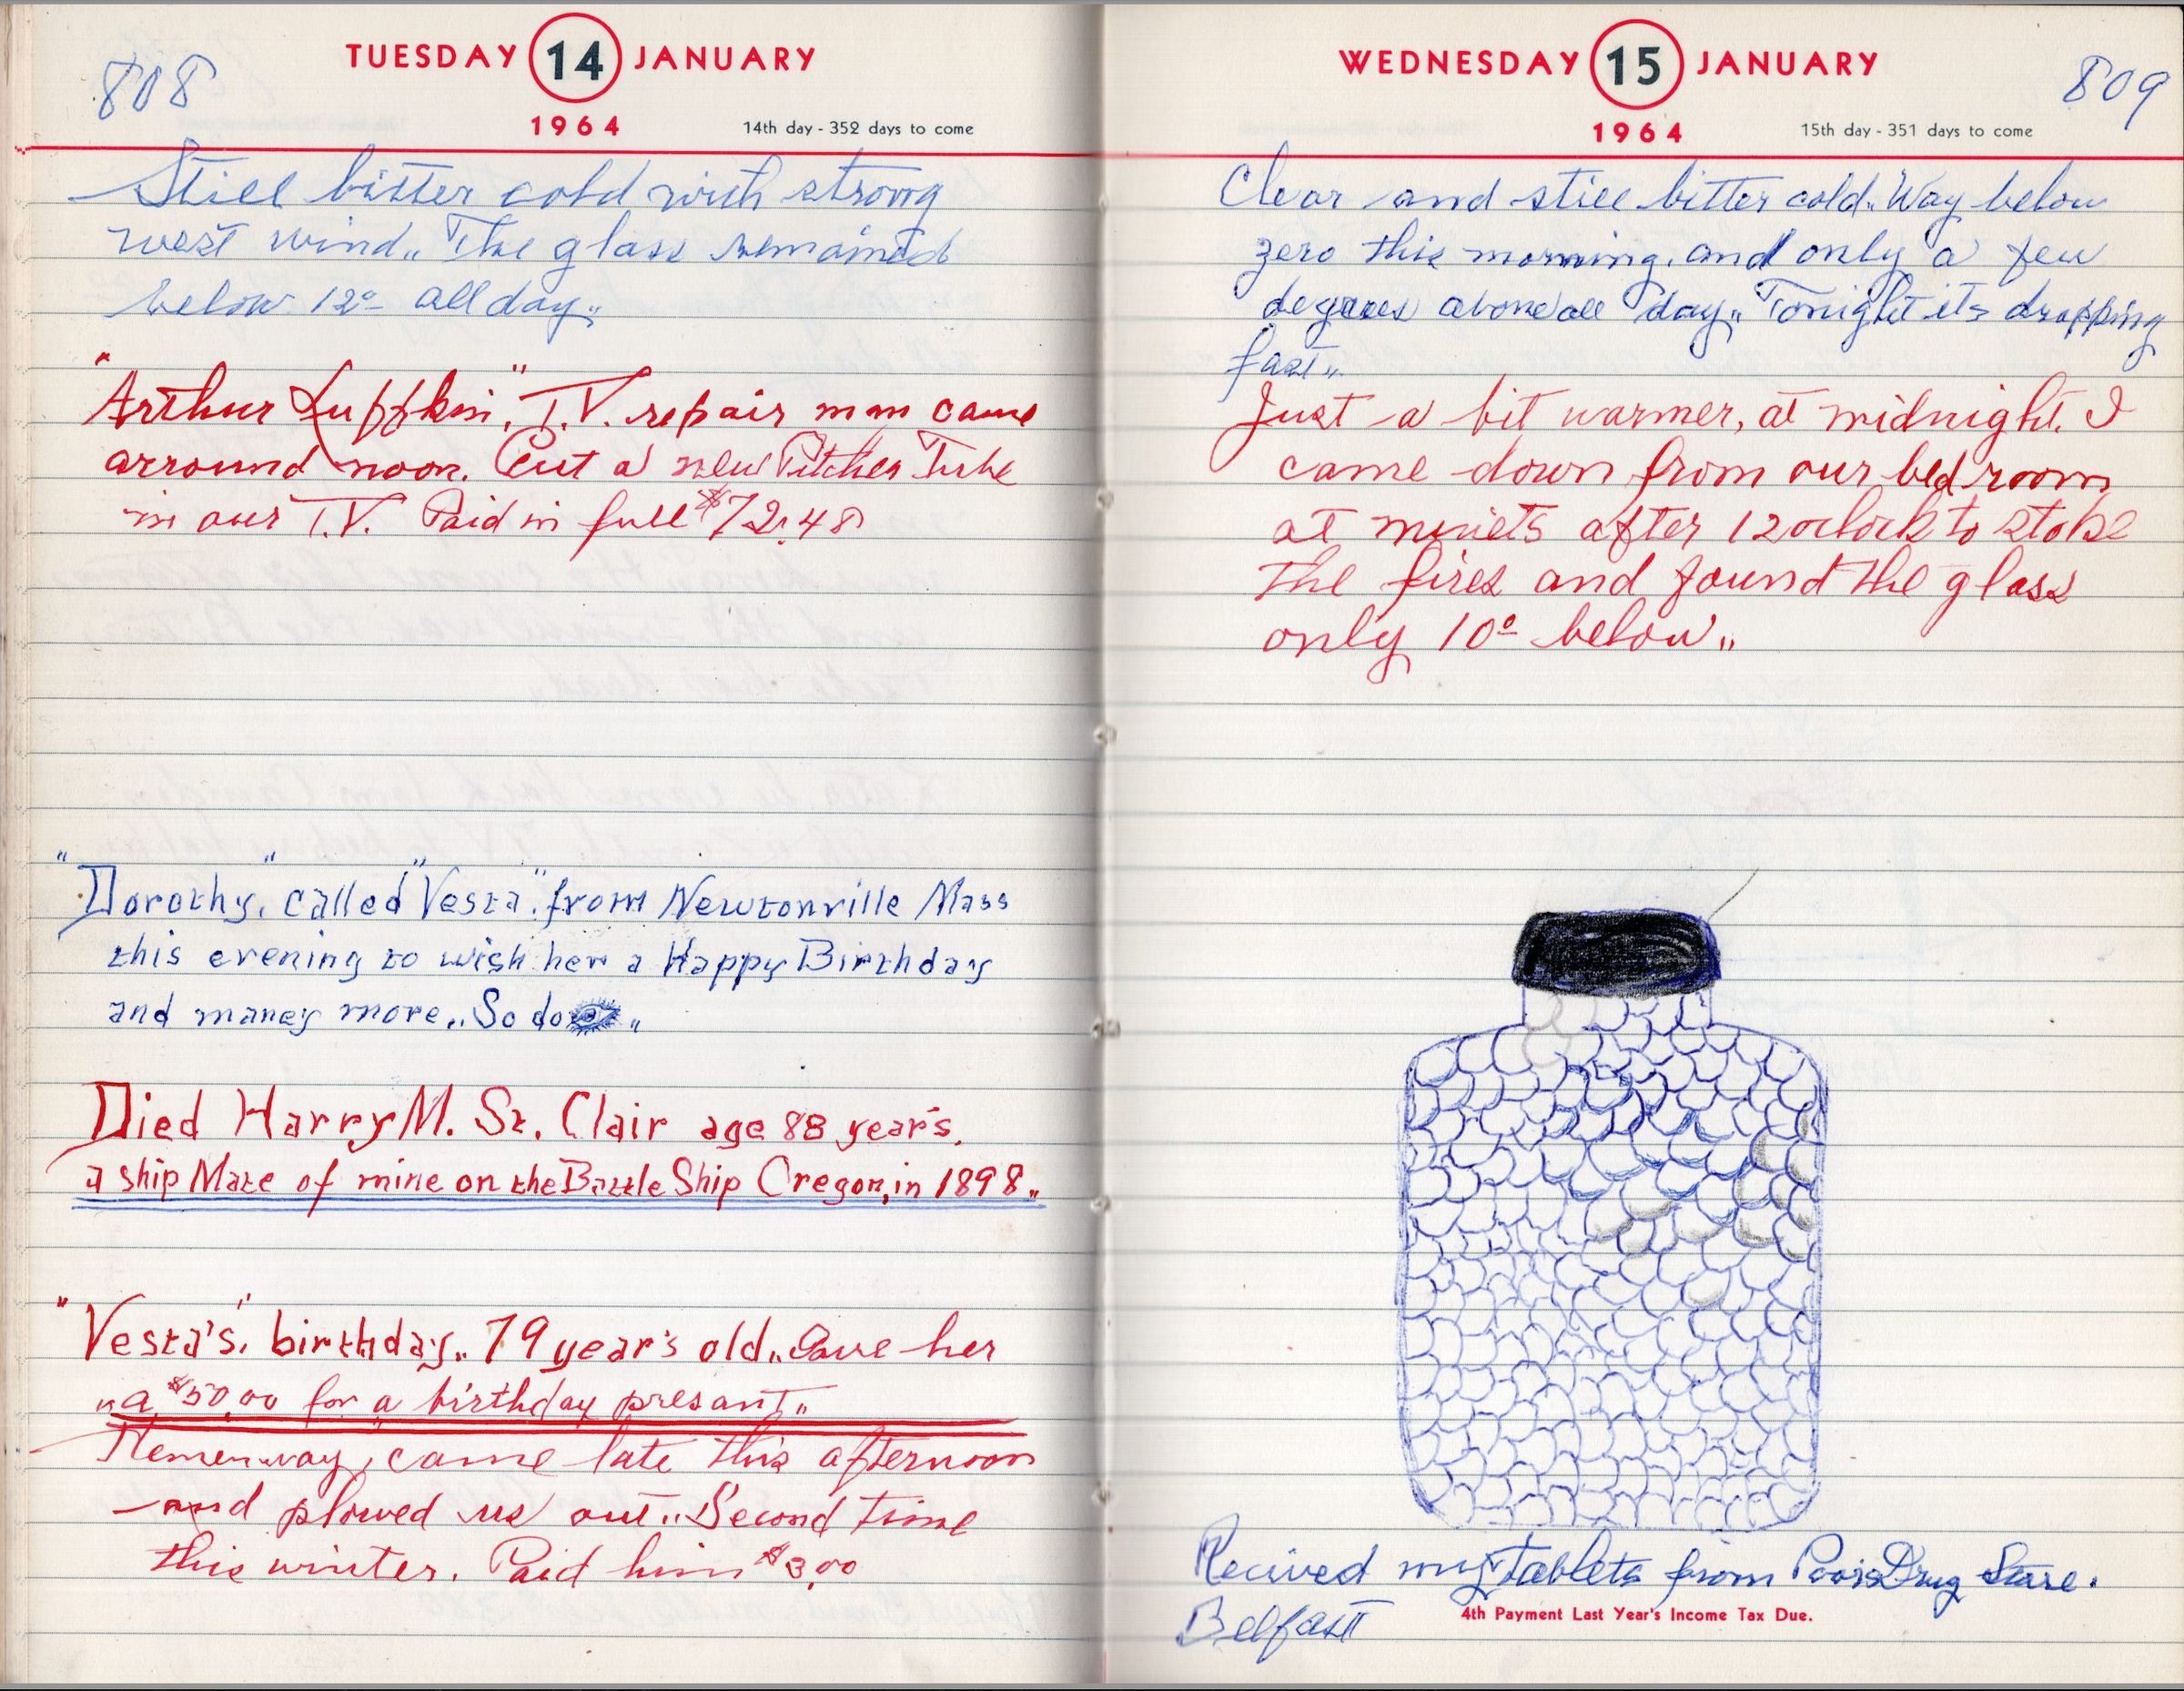 808
TUESDAY 14 JANUARY
1964
14th day - 352 days to come
Still bitter cold with strong
west wind,, The glass remained
below 12° all day,,
"Arthur Luffkin," T.V. repair man came
arround noon. Put a new Pitcher Tube
in our T.V. Paid in full $72.48
"Dorothy," called "Vesta", from Newtonville Mass
this evening to wish her a Happy Birthday
and maney more,, So do ,,
Died Harry M. St. Clair age 88 year's,
a ship Mate of mine on the Battle Ship Oregon, in 1898,,
"Vesta's," birthday,, 79 year's old,, Gave her
a $50.00 for a birthday presant,,
Hemenway, came late this afternoon
and plowed us out,, Second time
this winter. Paid him $3.00
WEDNESDAY 15 JANUARY
1964
15th day - 351 days to come
809
Clear and still bitter cold,, Way below
zero this morning, and only a few
degrees above all day,, Tonight its dropping
fast,,
Just a bit warmer, at midnight. I
came down from our bed room
at miniets after 12 oclock to stoke
the fires and found the glass
only 10° below,,
Recived my Tablets from Poors Drug Store.
Belfast
4th Payment Last Year's Income Tax Due.